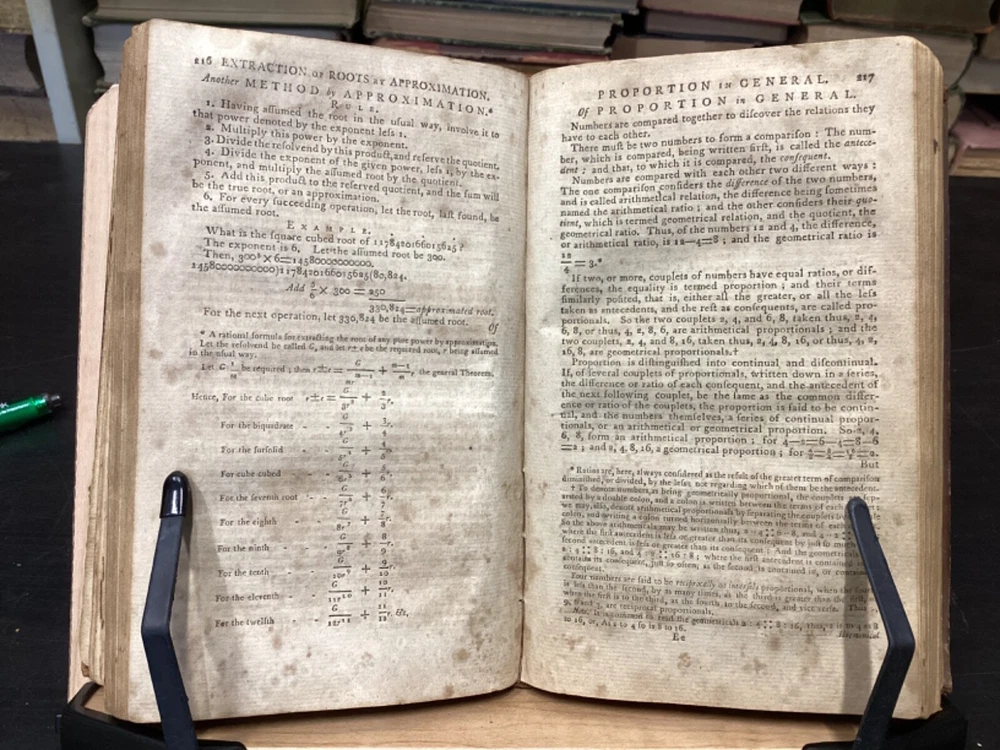 216 EXTRACTION OF ROOTS BY APPROXIMATION.
Another METHOD by APPROXIMATION.*
RULE.
1. Having aſſumed the root in the uſual way, involve it to
that power denoted by the exponent leſs 1.
2. Multiply this power by the exponent.
3. Divide the reſolvend by this product, and reſerve the quotient.
4. Divide the exponent of the given power, leſs 1, by the ex-
ponent, and multiply the aſſumed root by the quotient.
5. Add this product to the reſerved quotient, and the ſum will
be the true root, or an approximation.
6. For every ſucceeding operation, let the root, laſt found, be
the aſſumed root.
EXAMPLE.
What is the ſquare cubed root of 1178420166015625?
The exponent is 6. Let the aſſumed root be 300.
Then, 300⁵×6=14580000000000.
14580000000000)1178420166015625(80,824.
Add 5/6 × 300 = 250
330,824=approximated root.
For the next operation, let 330,824 be the aſſumed root.
Of
* A rational formula for extracting the root of any pure power by approximation.
Let the reſolvend be called G, and let r±e be the required root, r being aſſumed
in the uſual way.
be required; then the general Theorem.
Hence, For the cube root r±e = G/3r² + 2/3 r.
For the biquadrate - - G/4r³ + 3/4 r.
For the ſurſolid - - G/5r⁴ + 4/5 r.
For cube cubed - - G/6r⁵ + 5/6 r.
For the ſeventh root - - G/7r⁶ + 6/7 r.
For the eighth - - G/8r⁷ + 7/8 r.
For the ninth - - G/9r⁸ + 8/9 r.
For the tenth - - G/10r⁹ + 9/10 r.
For the eleventh - - G/11r¹⁰ + 10/11 r.
For the twelfth - - G/12r¹¹ + 11/12 r. &c,
PROPORTION IN GENERAL. 217
Of PROPORTION in GENERAL.
Numbers are compared together to diſcover the relations they
have to each other.
There muſt be two numbers to form a compariſon: The num-
ber, which is compared, being written firſt, is called the antece-
dent; and that, to which it is compared, the conſequent.
Numbers are compared with each other two different ways:
The one compariſon conſiders the difference of the two numbers,
and is called arithmetical relation, the difference being ſometimes
named the arithmetical ratio; and the other conſiders their quo-
tient, which is termed geometrical relation, and the quotient, the
geometrical ratio. Thus, of the numbers 12 and 4, the difference,
or arithmetical ratio, is 12—4=8; and the geometrical ratio is
12/4 = 3.*
If two, or more, couplets of numbers have equal ratios, or dif-
ferences, the equality is termed proportion; and their terms
ſimilarly poſited, that is, either all the greater, or all the leſs
taken as antecedents, and the reſt as conſequents, are called pro-
portionals. So the two couplets 2, 4, and 6, 8, taken thus, 2, 4,
6, 8, or thus, 4, 2, 8, 6, are arithmetical proportionals; and the
two couplets, 2, 4, and 8, 16, taken thus, 2, 4, 8, 16, or thus, 4, 2,
16, 8, are geometrical proportionals.†
Proportion is diſtinguiſhed into continual and diſcontinual.
If, of ſeveral couplets of proportionals, written down in a ſeries,
the difference or ratio of each conſequent, and the antecedent of
the next following couplet, be the ſame as the common differ-
ence or ratio of the couplets, the proportion is ſaid to be contin-
ual, and the numbers themſelves, a ſeries of continual propor-
tionals, or an arithmetical or geometrical proportion. So 2, 4,
6, 8, form an arithmetical proportion; for 4—2=6—4=8—6
=2; and 2, 4, 8, 16, a geometrical proportion; for 4/2=8/4=16/8=2.
But
* Ratios are, here, always conſidered as the reſult of the greater term of compariſon
diminiſhed, or divided, by the leſs, not regarding which of them be the antecedent.
† To denote numbers, as being geometrically proportional, the couplets are ſep-
arated by a double colon, and a colon is written between the terms of each
we may, alſo, denote arithmetical proportionals by ſeparating the couplets
colon, and writing a colon turned horizontally between the terms of each
So the above arithmeticals may be written thus, 2··4::6··8, and 4··2::
where the firſt antecedent is leſs or greater than its conſequent by juſt ſo much
ſecond antecedent is leſs or greater than its conſequent: And the geometricals
2:4::8:16, and 4:2::16:8; where the firſt antecedent is
contains its conſequent, juſt ſo often, as the ſecond is contained in, or contains
conſequent.
Four numbers are ſaid to be reciprocally or inverſely proportional, when the
is leſs than the ſecond, by as many times, as the third is greater than the
when the firſt is to the third, as the fourth to the ſecond, and vice verſa. Thus
are reciprocal proportionals.
Note. It is common to read the geometricals 2:4::8:16, thus, 2 is to 4 as 8
to 16, or, As 2 to 4 ſo is 8 to 16.
Ee